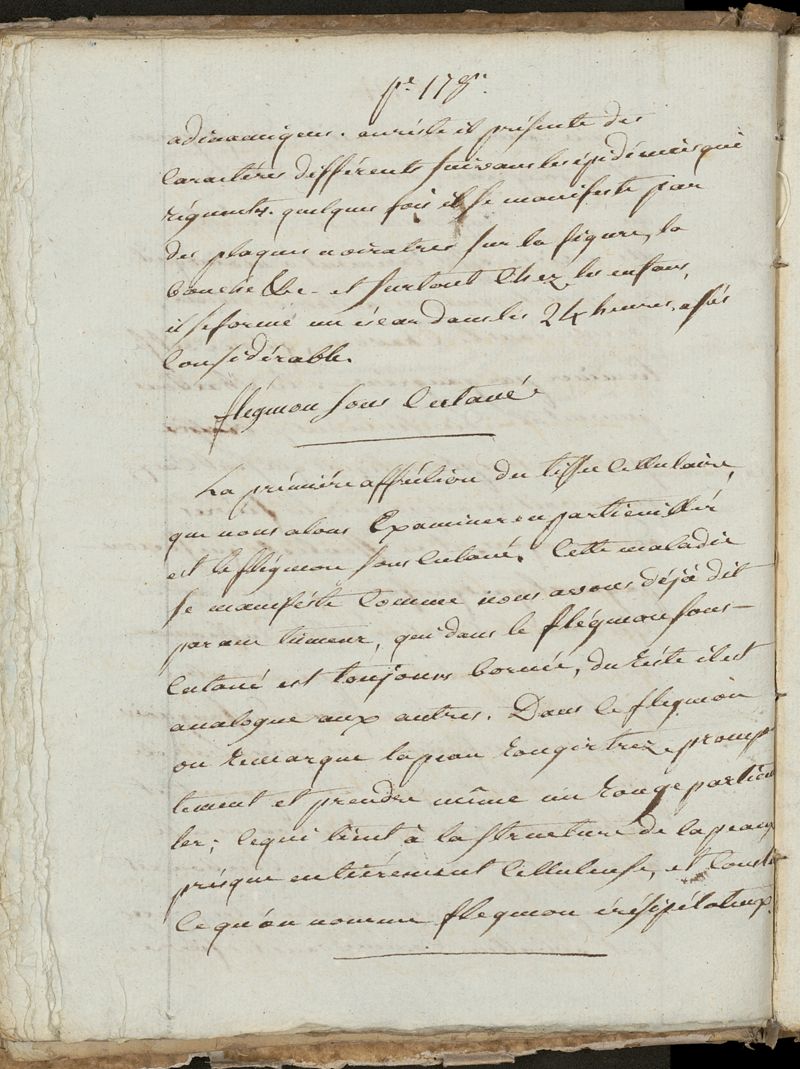 pe 178.
adinamiques. au reste il présente des
Caractères différents suivans les épidémies qui
règnents. quelques fois il se manifeste par
des plaques noiratres sur la figure, la
bouche &c. et surtout Chez les enfans,
il se forme un éscar dans les 24 heures assés
Considérable.
flégmon sous Cutané
La prémière afféction du tissu Cellulaire,
que nous alons Examiner en particuillér
est le flégmon sous Cutané. Cette maladie
se manifésté Comme nous avons déjà dit
par une tumeur, qui dans le flégmon sous-
Cutané est toujours bornée, du réste il est
analogue aux autres. Dans le flegmon
on remarque la peau rougir trèz promp
tement et prendre même un rouge particu
ler; Ce qui tient à la structure de la peau
présque entièrement Celluleuse, et
Ce qu'on nomme flegmon érésipélateux.